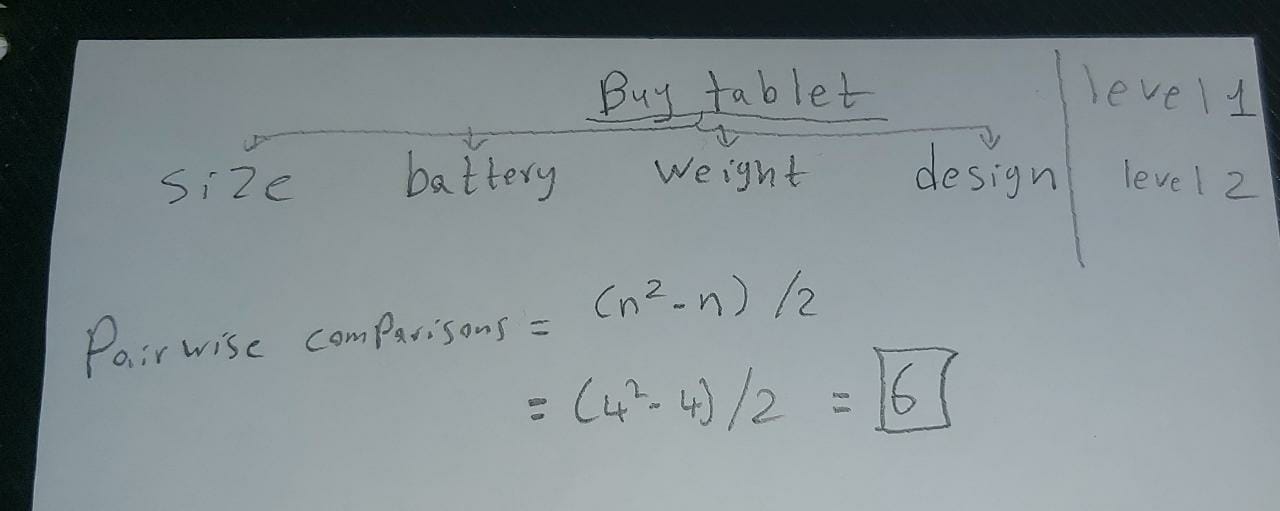 Buy tablet level 1
size battery weight design level 2
Pairwise comparisons = (n²-n) /2
= (4²-4)/2 = 6